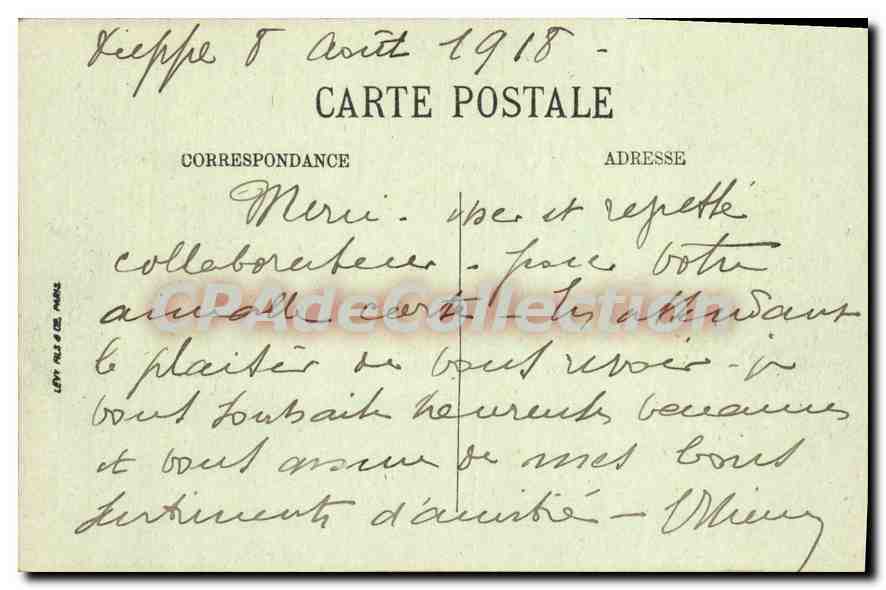 Dieppe 8 Août 1918 -
CARTE POSTALE
CORRESPONDANCE
ADRESSE
Merci - et regretté
collaborateur - pour votre
aimable carte - En attendant
le plaisir de vous revoir - je
vous souhaite heureuses vacances
et vous assure de mes bons
sentiments d'amitié -
LEVY FILS & CIE, PARIS
CPAdeCollection